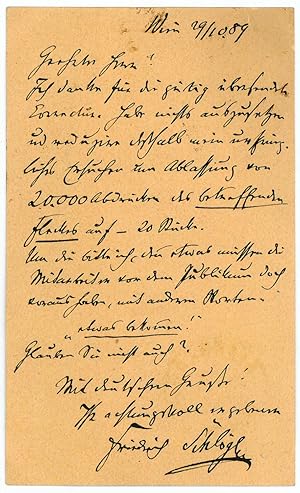 Wien 29/10.89
Geehrter Herr!
Ich danke für die gütig übersendete
Correctur. Habe nichts auszusetzen
und reduzire deshalb mein ursprüng-
liches Ersuchen um Ablassung von
20.000 Abdrücken des betreffenden
Fleckes auf – 20 Stücke.
Um die bitte ich, denn etwas müssen die
Mitarbeiter vor dem Publikum doch
voraus haben, mit anderen Worten:
"etwas bekomen!"
Glauben Sie nicht auch?
Mit deutschem Gruße!
Ihr achtungsvoll ergebener
Friedrich Schlögl